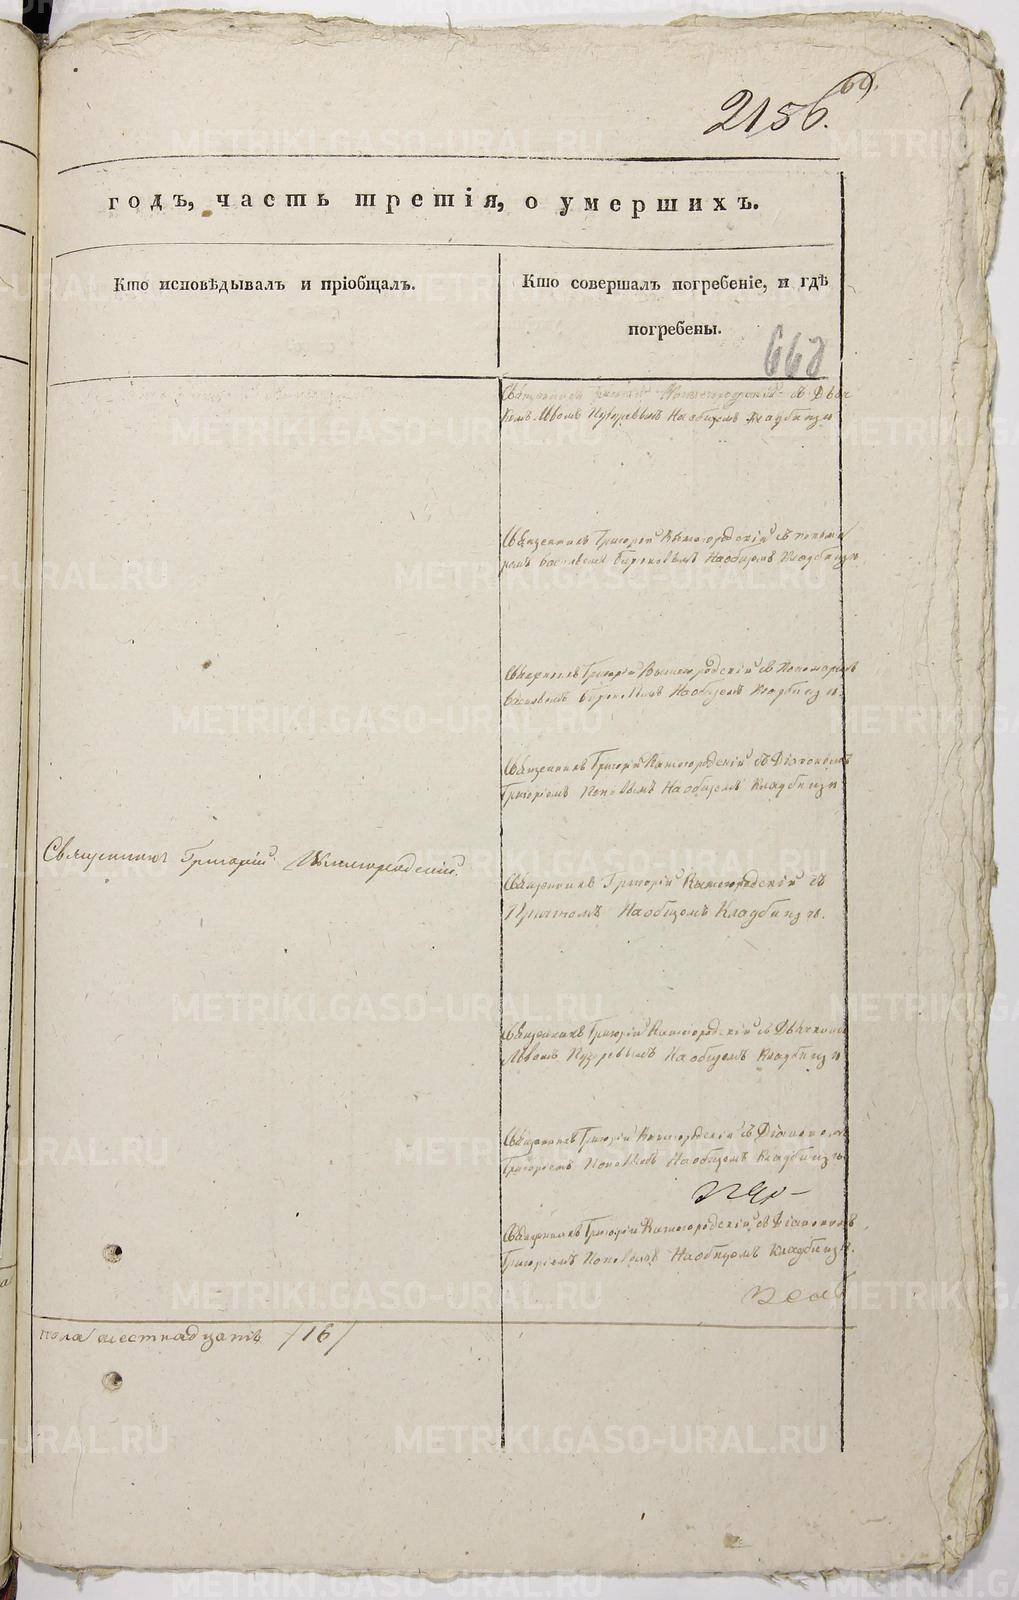 2156.
69.
годъ, часть третія, о умершихъ.
Кто исповѣдывалъ и пріобщалъ.
Кто совершалъ погребеніе, и гдѣ
погребены.
668
Священникъ Григорій Вышегородскій съ Дьяч
комъ Львомъ Пузыревымъ На общемъ Кладбищѣ
Священникъ Григорій Вышегородскій съ понома
ремъ На общемъ Кладбищѣ
Священникъ Григорій Вышегородскій съ Пономаремъ
На общемъ Кладбищѣ.
Священникъ Григорій Вышегородскій съ Діакономъ
Григоріемъ Поповымъ На общемъ Кладбищѣ
Священникъ Григорій Вышегородскій.
Священникъ Григорій Вышегородскій съ
Причтомъ На общемъ Кладбищѣ.
Священникъ Григорій Вышегородскій съ Дьячкомъ
Львомъ Пузыревымъ На общемъ Кладбищѣ
Священникъ Григорій Вышегородскій съ Діакономъ
Григоріемъ Поповымъ На общемъ Кладбищѣ
Священникъ Григорій Вышегородскій съ Діакономъ
Григоріемъ Поповымъ На общемъ Кладбищѣ.
пола шестнадцать /16/
METRIKI.GASO-URAL.RU